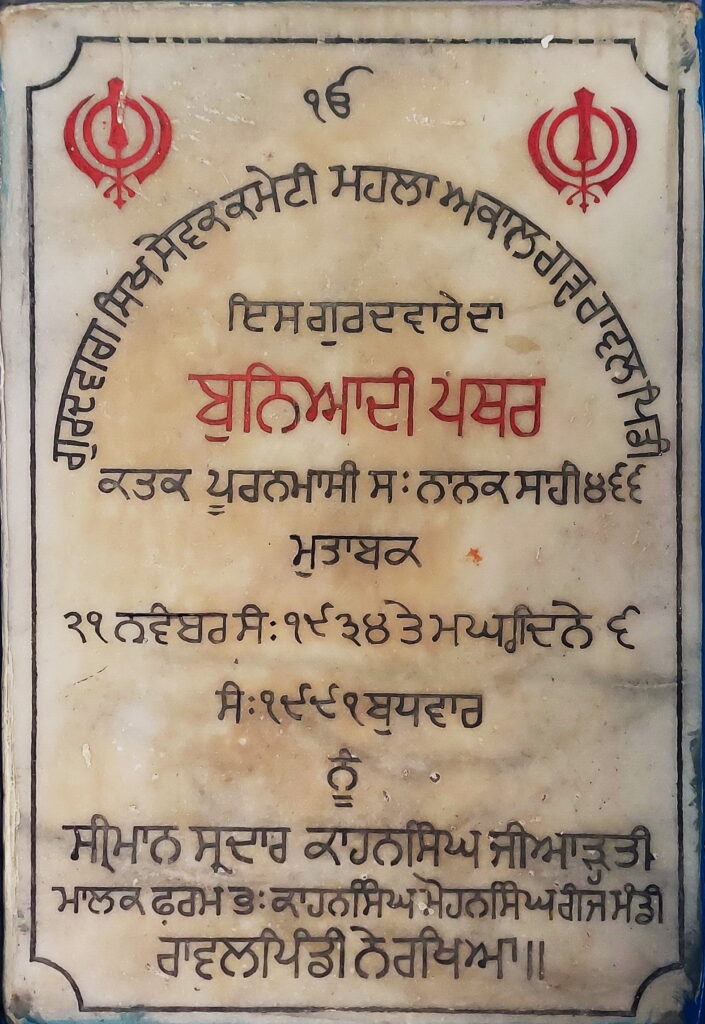 ੴ
ਗੁਰਦਵਾਰਾ ਸਿਖ ਸੇਵਕ ਕਮੇਟੀ ਮਹਲਾ ਅਕਾਲ ਗੜ੍ਹ ਰਾਵਲ ਪਿੰਡੀ
ਇਸ ਗੁਰਦਵਾਰੇ ਦਾ
ਬੁਨਿਆਦੀ ਪਥਰ
ਕਤਕ ਪੂਰਨਮਾਸੀ ਸ: ਨਾਨਕ ਸਹੀ ੪੬੬
ਮੁਤਾਬਕ
੨੧ ਨਵੰਬਰ ਸੰ: ੧੯੩੪ ਤੇ ਮਘਰ ਦਿਨੇ ੬
ਸੰ: ੧੯੯੧ ਬੁਧਵਾਰ
ਨੂੰ
ਸ੍ਰੀਮਾਨ ਸ੍ਰਦਾਰ ਕਾਹਨ ਸਿੰਘ ਜੀ ਆੜ੍ਹਤੀ
ਮਾਲਕ ਫ਼ਰਮ ਭ: ਕਾਹਨ ਸਿੰਘ ਮੋਹਨ ਸਿੰਘ ਗੰਜ ਮੰਡੀ
ਰਾਵਲਪਿੰਡੀ ਨੇ ਰਖਿਆ॥